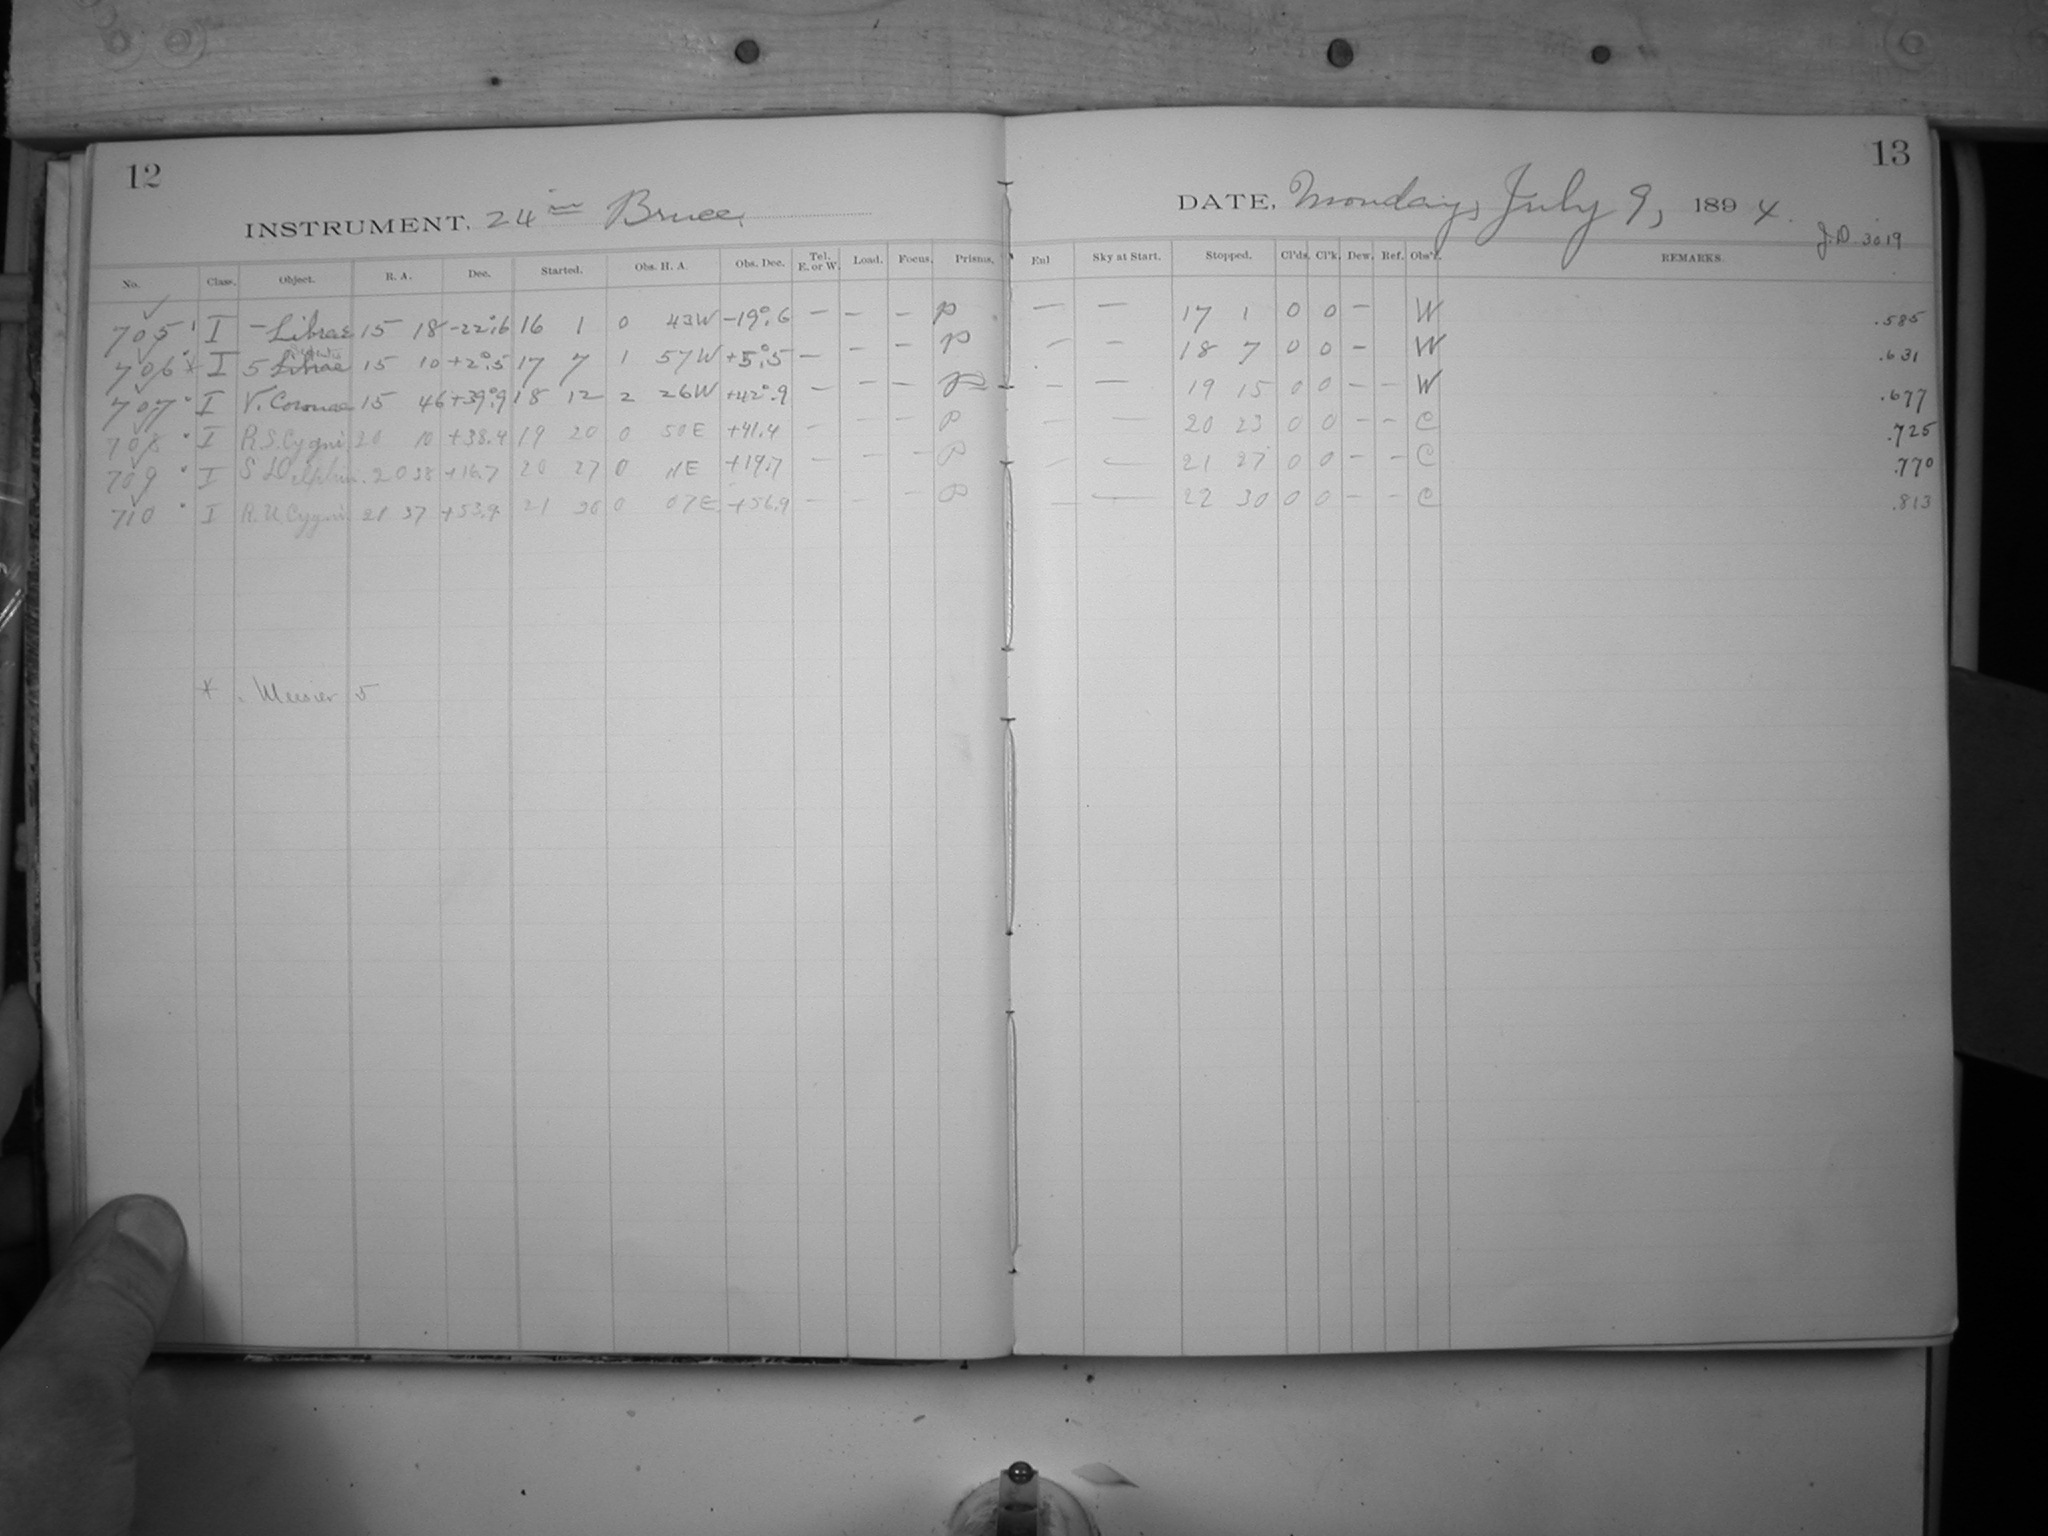 12
13
INSTRUMENT, 24 in Bruce,
DATE, Monday, July 9, 1894.
J.D. 3019
No. Class. Object. R. A. Dec. Started. Obs. H. A. Obs. Dec. Tel. E. or W. Load. Focus. Prisms. Eul Sky at Start. Stopped. Cl'ds. Cl'k. Dew. Ref. Obs'r. REMARKS.
705 I – Librae 15 18 -22°.6 16 1 0 43W -19°.6 – – – P — — 17 1 0 0 – W .585
706 * I 5 Librae 15 10 +2°.5 17 7 1 57W +5°.5 – – – P – – 18 7 0 0 – W .631
707 I V. Coronae 15 46 +39°.9 18 12 2 26W +42°.9 – – – P – — 19 15 0 0 – – W .677
708 I R.S. Cygni 20 10 +38.4 19 20 0 50E +41.4 – – – P – — 20 23 0 0 – – C .725
709 I S Delphin. 20 38 +16.7 20 27 0 11E +19.7 – – – P – — 21 27 0 0 – – C .770
710 I R.U. Cygni 21 37 +53.9 21 30 0 07E +56.9 – – – P — — 22 30 0 0 – – C .813
* . Messier 5